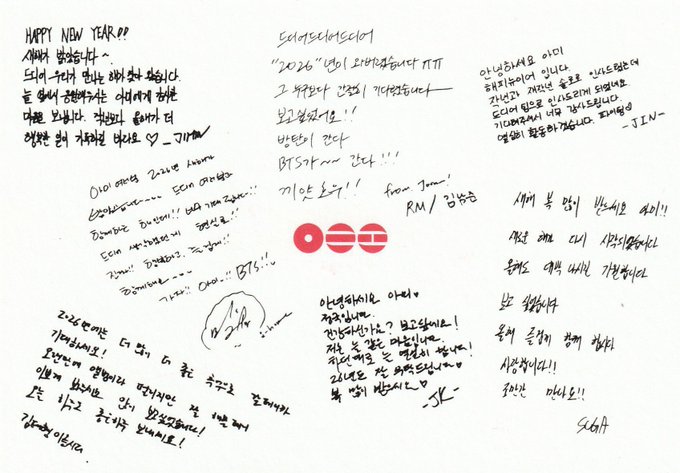 HAPPY NEW YEAR!!
새해가 밝았습니다~
드디어 우리가 만나는 해가 찾아 왔습니다.
늘 옆에서 응원해주시는 아미에게 감사한
마음을 보냅니다. 작년보다 올해가 더
행복한 일이 가득하길 바라요 ♡ _JIMIN
드디어드디어드디어
"2026"년이 와버렸습니다 ㅠㅠ
그 누구보다 간절히 기다렸습니다
보고싶었어요!!
방탄이 간다
BTS가~~ 간다!!!
끼얏호우!!
from Joon!
RM / 김남준
안녕하세요 아미
해피뉴이어 입니다.
작년과 재작년 솔로로 인사드렸는데
드디어 팀으로 인사드리게 되었네요
기다려주셔서 너무 감사드립니다.
열심히 활동하겠습니다. 파이팅♡
-JIN-
아미 여러분 2026년 새해가
밝았습니다
드디어 여러분과
함께하는
드디어 생각했던게 현실로!!
진짜!! 행복하고, 즐겁게!!
함께해요----
가자!! 아미..!! BTS!!
j-hope
새해 복 많이 받으세요 아미!!
새로운 해가 다시 시작되었습니다
올해도 대박 나시길 기원합니다
보고 싶었습니다
올해 즐겁게 함께 합시다
사랑합니다!!
조만간 만나요!!
SUGA
안녕하세요 아미♡
정국입니다.
건강하신가요? 보고싶네요!
저는 늘 같은 마음입니다.
하던대로 늘 열심히 합니다!
26년도 잘 부탁드립니다♡
복 많이 받으세요♡
-JK-
2026년에는 더 많이 더 좋은 추억으로 잘 해봐요
기대하세요!
오랜만에 앨범이라 떨리지만 잘 해볼테니
이쁘게 봐주시고 많이 보고싶었습니다!
오늘 하루도 좋은하루 보내세요!
김태형 이었습니다